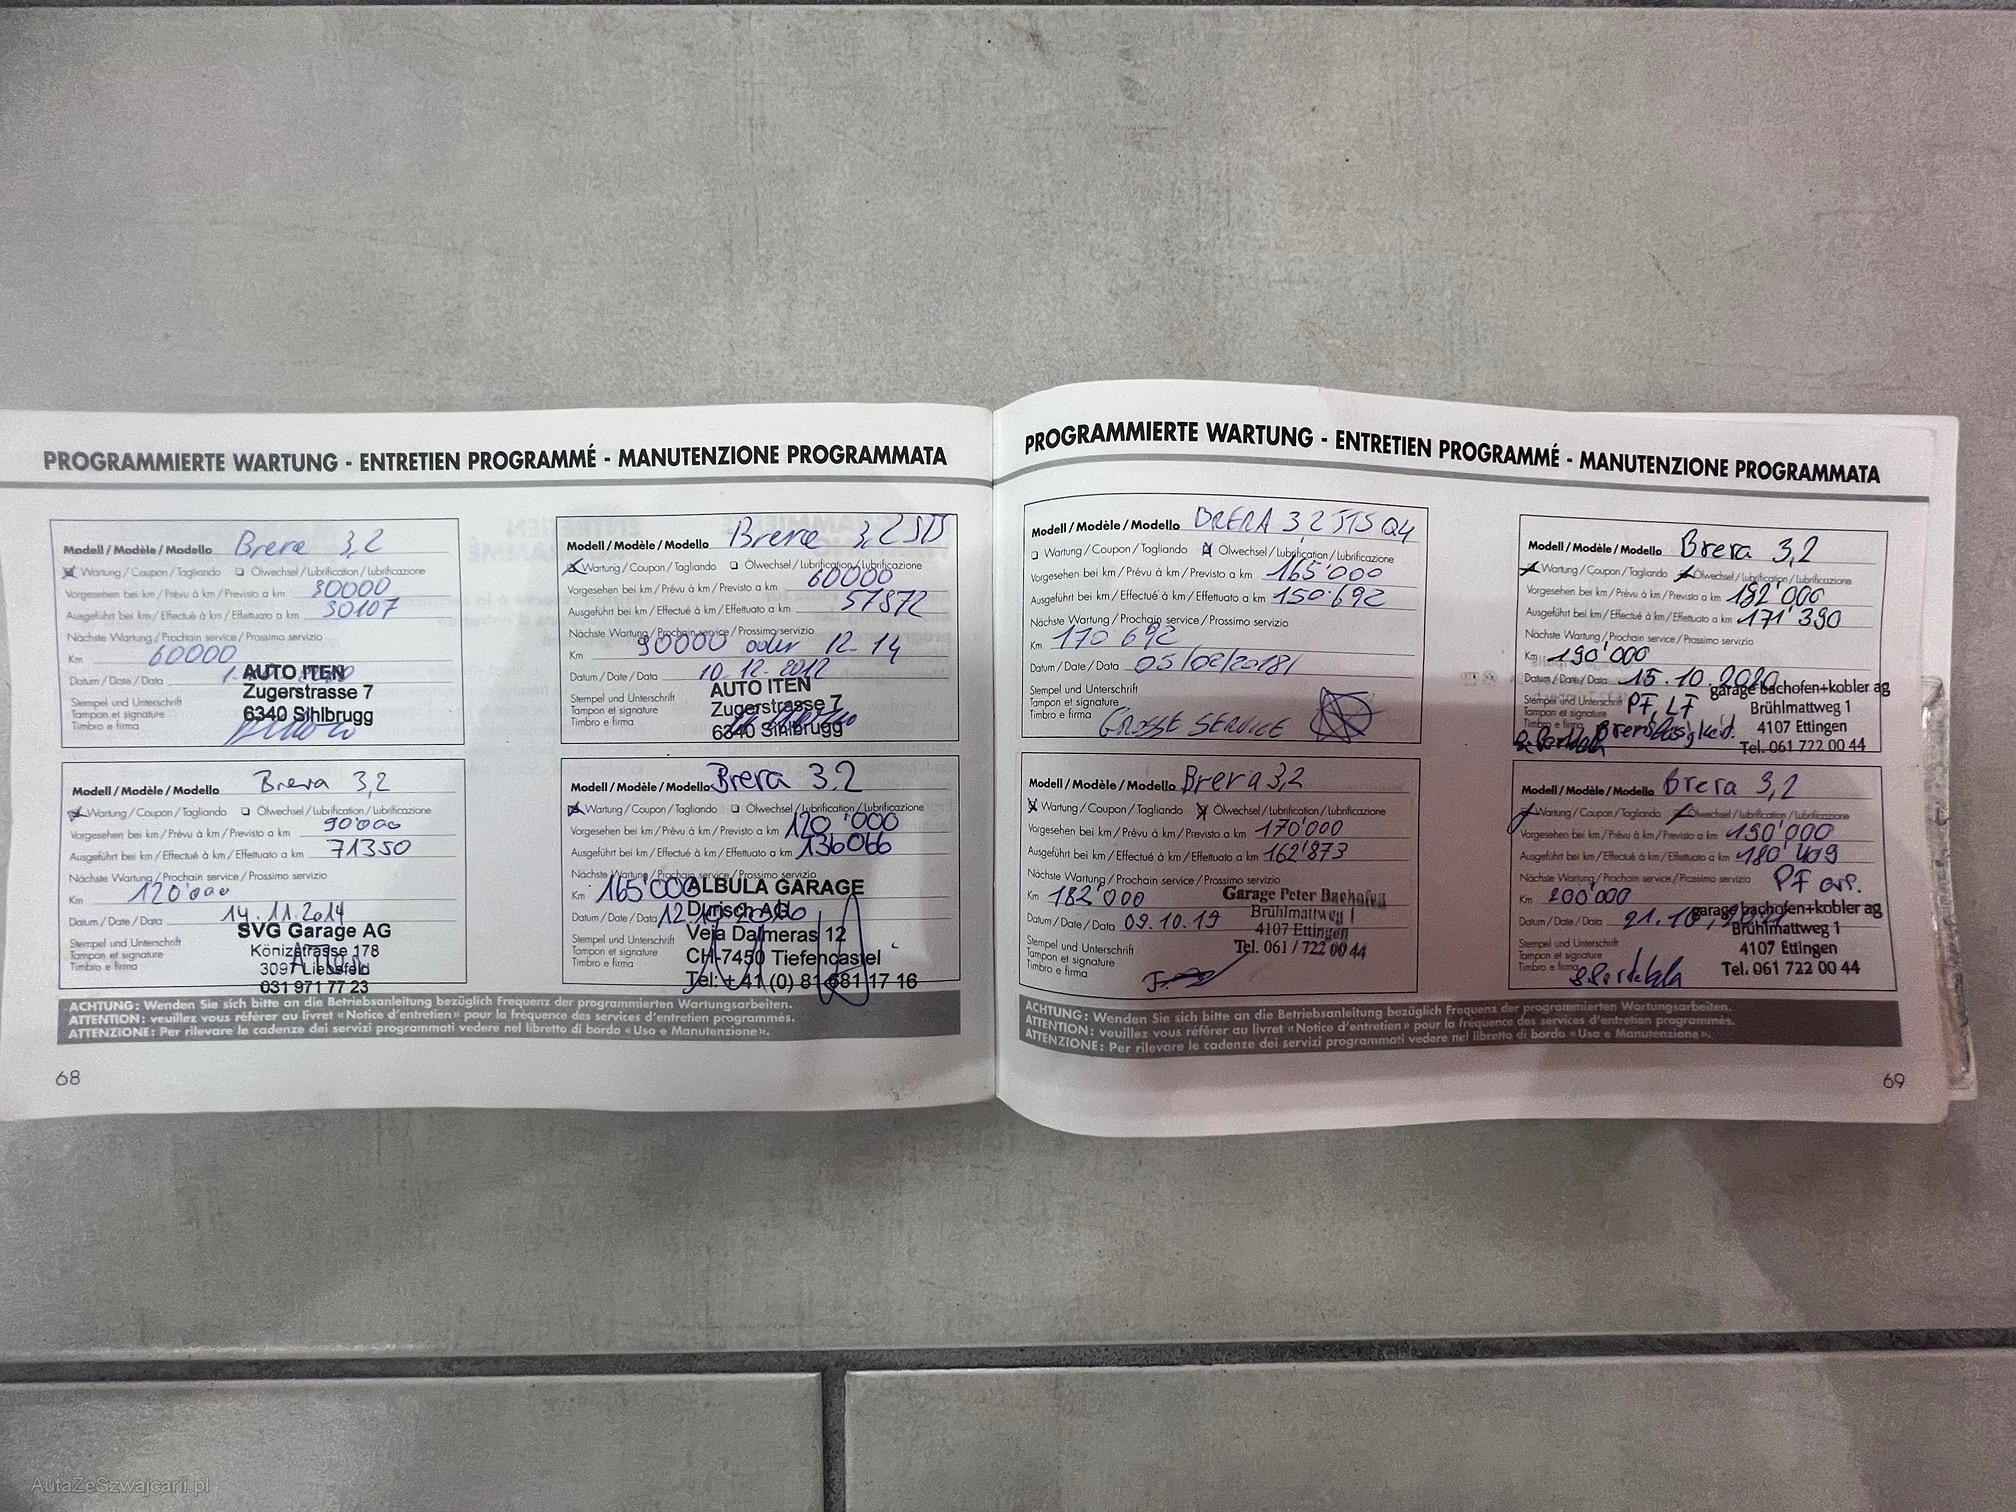 PROGRAMMIERTE WARTUNG - ENTRETIEN PROGRAMMÉ - MANUTENZIONE PROGRAMMATA
Modell / Modèle / Modello Brera 3,2
Wartung / Coupon / Tagliando Ölwechsel / Lubrification / Lubrificazione
Vorgesehen bei km / Prévu à km / Previsto a km 30000
Ausgeführt bei km / Effectué à km / Effettuato a km 30107
Nächste Wartung / Prochain service / Prossimo servizio
Km 60000
Datum / Date / Data
Stempel und Unterschrift
Tampon et signature
Timbro e firma
AUTO ITEN
Zugerstrasse 7
6340 Sihlbrugg
Modell / Modèle / Modello Brera 3,2 JTS
Wartung / Coupon / Tagliando Ölwechsel / Lubrification / Lubrificazione
Vorgesehen bei km / Prévu à km / Previsto a km 60000
Ausgeführt bei km / Effectué à km / Effettuato a km 57872
Nächste Wartung / Prochain service / Prossimo servizio
Km 90000 oder 12-14
Datum / Date / Data 10.12.2012
Stempel und Unterschrift
Tampon et signature
Timbro e firma
AUTO ITEN
Zugerstrasse 7
6340 Sihlbrugg
Modell / Modèle / Modello Brera 3,2
Wartung / Coupon / Tagliando Ölwechsel / Lubrification / Lubrificazione
Vorgesehen bei km / Prévu à km / Previsto a km 90'000
Ausgeführt bei km / Effectué à km / Effettuato a km 71350
Nächste Wartung / Prochain service / Prossimo servizio
Km 120'000
Datum / Date / Data 14.11.2014
Stempel und Unterschrift
Tampon et signature
Timbro e firma
SVG Garage AG
Könizstrasse 178
3097 Liebefeld
031 971 77 23
Modell / Modèle / Modello Brera 3.2
Wartung / Coupon / Tagliando Ölwechsel / Lubrification / Lubrificazione
Vorgesehen bei km / Prévu à km / Previsto a km 120'000
Ausgeführt bei km / Effectué à km / Effettuato a km 136066
Nächste Wartung / Prochain service / Prossimo servizio
Km 165'000
Datum / Date / Data
Stempel und Unterschrift
Tampon et signature
Timbro e firma
ALBULA GARAGE
Durisch AG
Veia Dalmeras 12
CH-7450 Tiefencastel
Tel: +41 (0) 81 681 17 16
ACHTUNG: Wenden Sie sich bitte an die Betriebsanleitung bezüglich Frequenz der programmierten Wartungsarbeiten.
ATTENTION: veuillez vous référer au livret «Notice d'entretien» pour la fréquence des services d'entretien programmés.
ATTENZIONE: Per rilevare le cadenze dei servizi programmati vedere nel libretto di bordo «Uso e Manutenzione».
68
PROGRAMMIERTE WARTUNG - ENTRETIEN PROGRAMMÉ - MANUTENZIONE PROGRAMMATA
Modell / Modèle / Modello BRERA 3,2 JTS Q4
Wartung / Coupon / Tagliando Ölwechsel / Lubrification / Lubrificazione
Vorgesehen bei km / Prévu à km / Previsto a km 165'000
Ausgeführt bei km / Effectué à km / Effettuato a km 150.692
Nächste Wartung / Prochain service / Prossimo servizio
Km 170 692
Datum / Date / Data 05/02/2018
Stempel und Unterschrift
Tampon et signature
Timbro e firma GROSSE SERVICE
Modell / Modèle / Modello Brera 3,2
Wartung / Coupon / Tagliando Ölwechsel / Lubrification / Lubrificazione
Vorgesehen bei km / Prévu à km / Previsto a km 182'000
Ausgeführt bei km / Effectué à km / Effettuato a km 171'390
Nächste Wartung / Prochain service / Prossimo servizio
Km 190'000
Datum / Date / Data 15.10.2020
Stempel und Unterschrift PF, LF
Tampon et signature
Timbro e firma Bremsflüssigkeit.
garage bachofen+kobler ag
Brühlmattweg 1
4107 Ettingen
Tel. 061 722 00 44
Modell / Modèle / Modello Brera 3,2
Wartung / Coupon / Tagliando Ölwechsel / Lubrification / Lubrificazione
Vorgesehen bei km / Prévu à km / Previsto a km 170'000
Ausgeführt bei km / Effectué à km / Effettuato a km 162'873
Nächste Wartung / Prochain service / Prossimo servizio
Km 182'000
Datum / Date / Data 09.10.19
Stempel und Unterschrift
Tampon et signature
Timbro e firma
Garage Peter Bachofen
Brühlmattweg 1
4107 Ettingen
Tel. 061 / 722 00 44
Modell / Modèle / Modello Brera 3,2
Wartung / Coupon / Tagliando Ölwechsel / Lubrification / Lubrificazione
Vorgesehen bei km / Prévu à km / Previsto a km 190'000
Ausgeführt bei km / Effectué à km / Effettuato a km 180'409
Nächste Wartung / Prochain service / Prossimo servizio PF
Km 200'000
Datum / Date / Data 21.10.
Stempel und Unterschrift
Tampon et signature
Timbro e firma
garage bachofen+kobler ag
Brühlmattweg 1
4107 Ettingen
Tel. 061 722 00 44
ACHTUNG: Wenden Sie sich bitte an die Betriebsanleitung bezüglich Frequenz der programmierten Wartungsarbeiten.
ATTENTION: veuillez vous référer au livret «Notice d'entretien» pour la fréquence des services d'entretien programmés.
ATTENZIONE: Per rilevare le cadenze dei servizi programmati vedere nel libretto di bordo «Uso e Manutenzione».
69
AutaZeSzwajcarii.pl